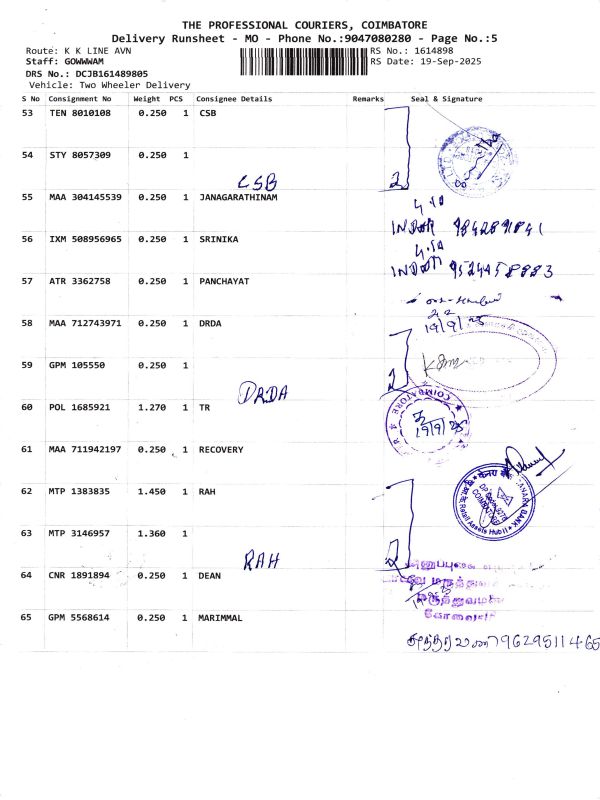 THE PROFESSIONAL COURIERS, COIMBATORE
Delivery Runsheet - MO - Phone No.:9047080280 - Page No.:5
Route: K K LINE AVN RS No.: 1614898
Staff: GOWWWAM RS Date: 19-Sep-2025
DRS No.: DCJB161489805
Vehicle: Two Wheeler Delivery
S No Consignment No Weight PCS Consignee Details Remarks Seal & Signature
53 TEN 8010108 0.250 1 CSB
54 STY 8057309 0.250 1
CSB 2
55 MAA 304145539 0.250 1 JANAGARATHINAM
56 IXM 508956965 0.250 1 SRINIKA
57 ATR 3362758 0.250 1 PANCHAYAT
58 MAA 712743971 0.250 1 DRDA
19/9/25
59 GPM 105550 0.250 1
DRDA 2
60 POL 1685921 1.270 1 TR
COIMBATORE
19/9/25
61 MAA 711942197 0.250 1 RECOVERY
62 MTP 1383835 1.450 1 RAH
CANARA BANK
Retail Assets Hub
63 MTP 3146957 1.360 1
RAH 2
64 CNR 1891894 0.250 1 DEAN
65 GPM 5568614 0.250 1 MARIMMAL
9629511465